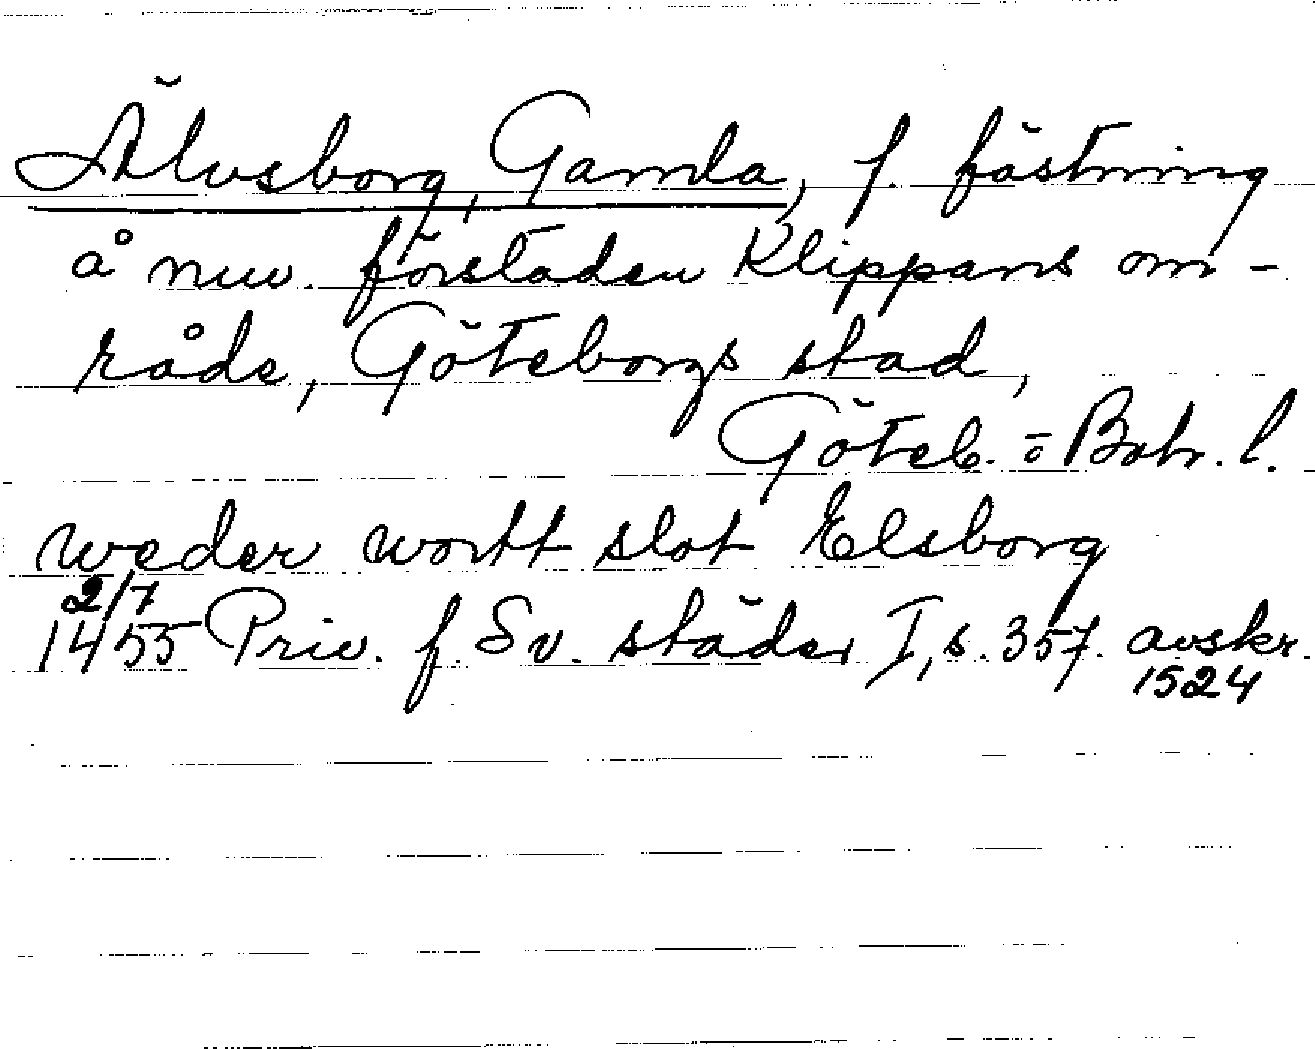 Älvsborg, Gamla, f. fästning
å nuv. förstaden Klippans om-
råde, Göteborgs stad,
Göteb. o Boh. l.
weder wortt slot Elsborg
2/7
1455 Priv. f. Sv. städer I, s. 357. avskr.
1524